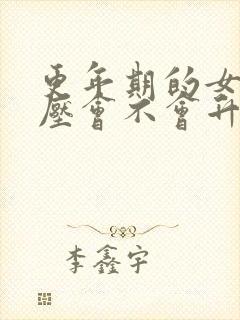 更年期的女
壓會不會升
李鑫宇